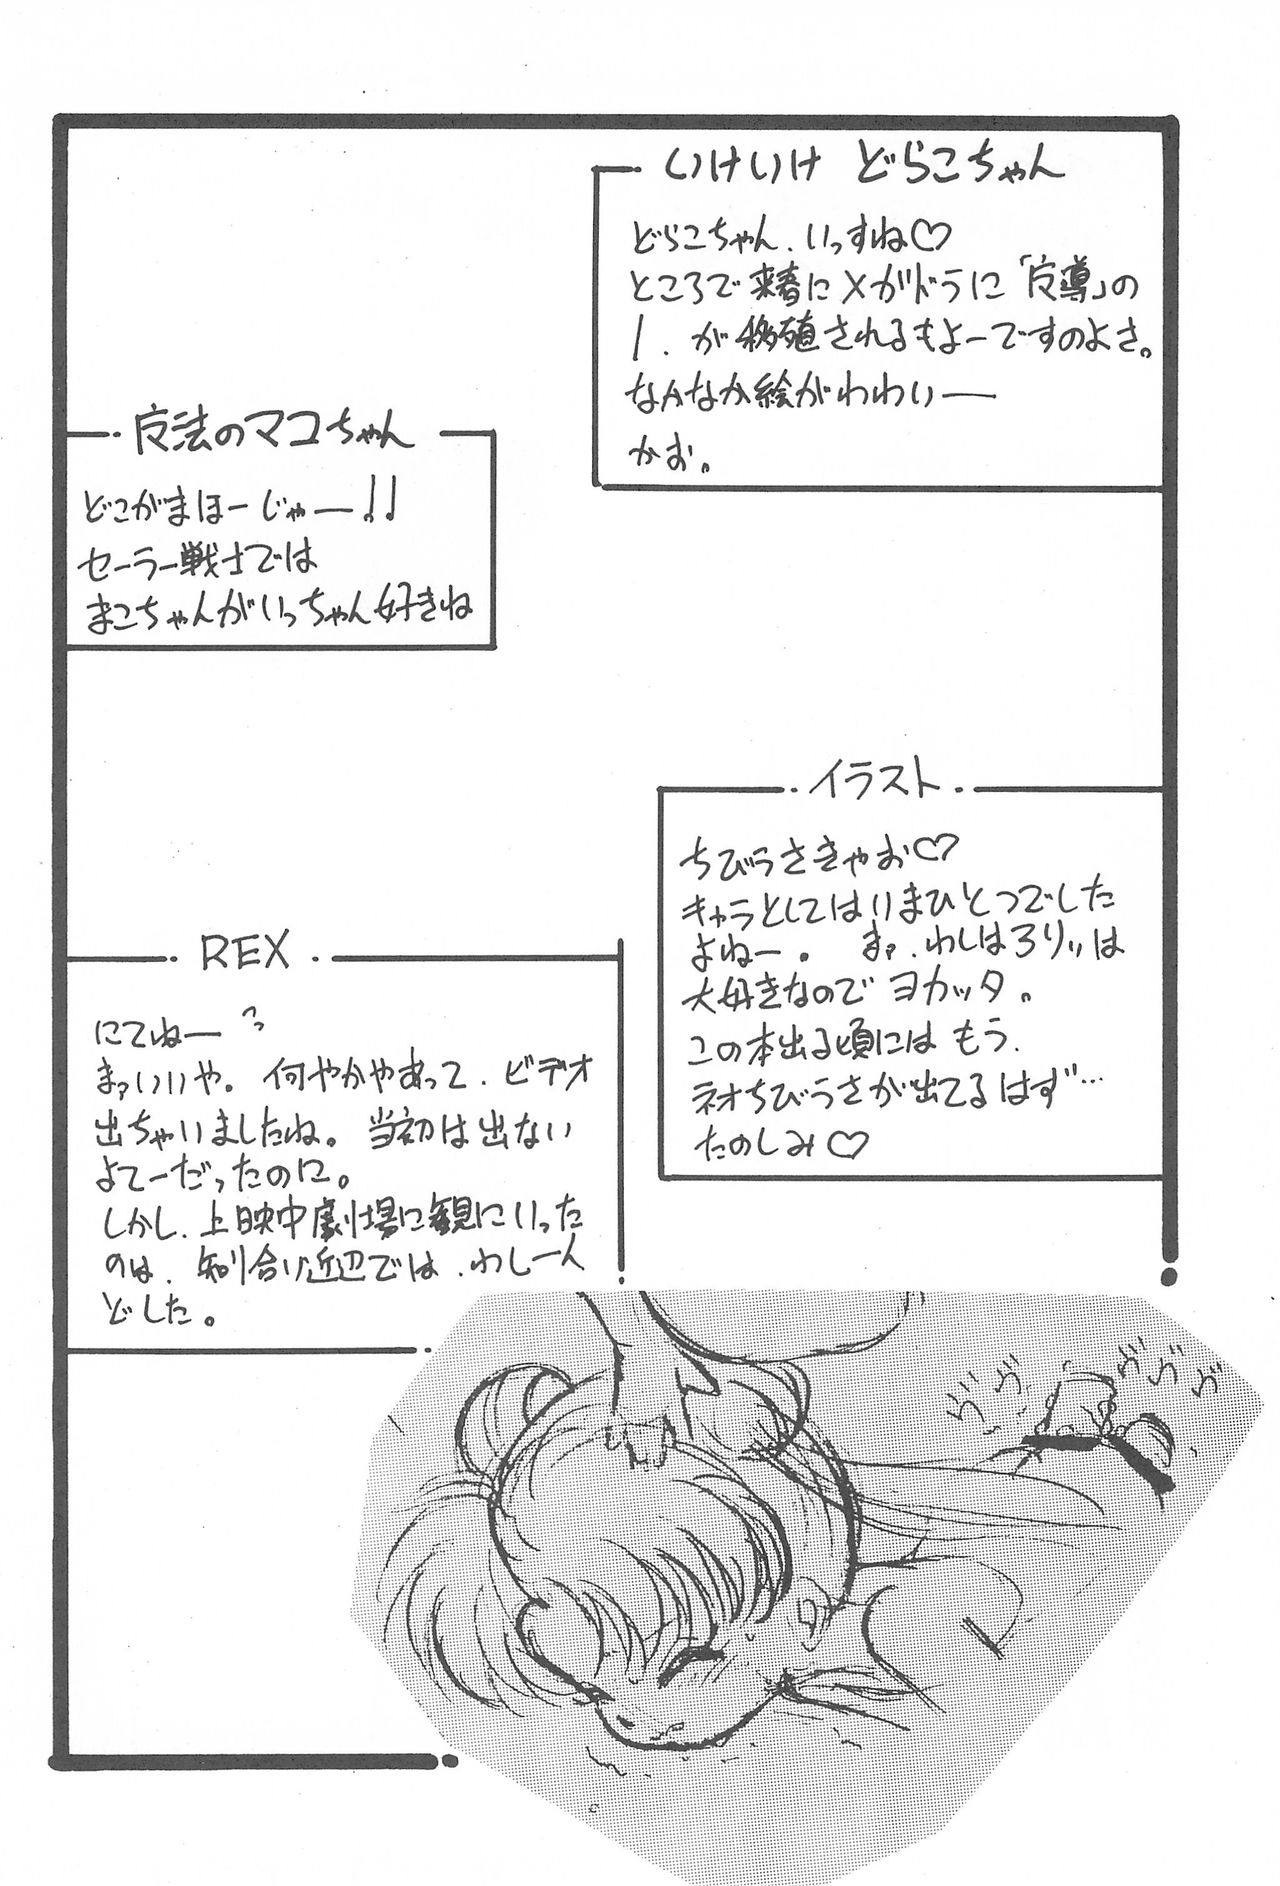 いけいけ どらこちゃん
どらこちゃん、いっすね♡
ところで来春にメガドラに「反導」の
1.が移殖されるもよーですのよさ。
なかなか絵がわわいー
かお。
反法のマコちゃん
どこがまほーじゃー!!
セーラー戦士では
まこちゃんがいっちゃん好きね
イラスト
ちびうさきゃお♡
キャラとしてはいまひとつでした
よねー。まァ、わしはろりぃは
大好きなのでヨカッタ。
この本出る頃にはもう、
ネオちびうさが出てるはず…
たのしみ♡
REX
にてねーっ
まァいいや。何やかやあって、ビデオ
出ちゃいましたね。当初は出ない
よてーだったのに。
しかし、上映中劇場に観にいった
のは、知り合い近辺では、わし一人
どした。
ヴヴヴヴヴ